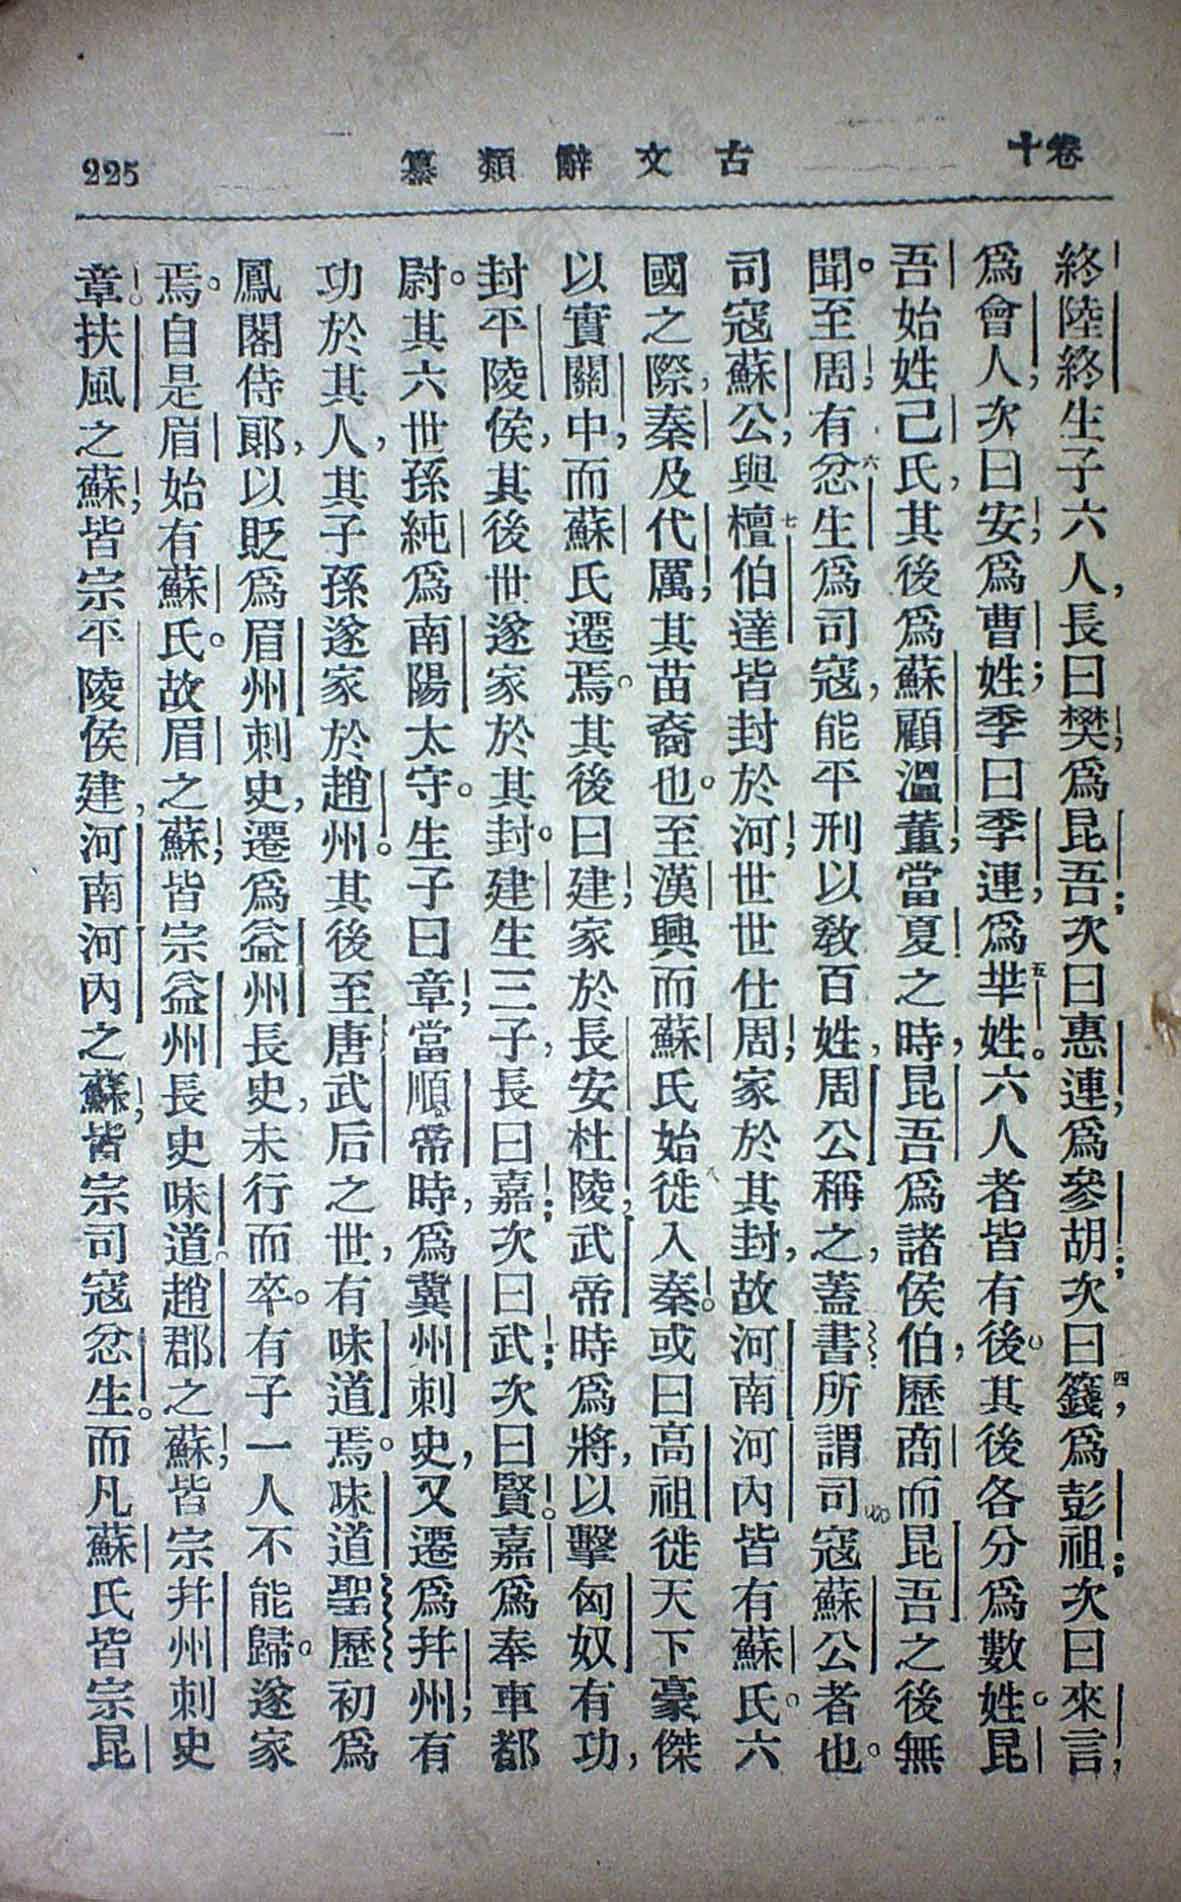 卷十
古文辭類纂
225
終陸終生子六人，長曰樊，爲昆吾；次曰惠連，爲參胡；次曰籛，四爲彭祖；次曰來言，
爲會人，次曰安，爲曹姓；季曰季連，爲羋五姓。六人者皆有後，其後各分爲數姓。昆
吾始姓己氏，其後爲蘇顧溫董，當夏之時，昆吾爲諸侯伯，歷商而昆吾之後無
聞。至周，有忿六生爲司寇，能平刑以敎百姓，周公稱之，蓋書所謂司寇蘇公者也。
司寇蘇公，與檀七伯達皆封於河，世世仕周，家於其封，故河南河內皆有蘇氏。六
國之際，秦及代厲，其苗裔也。至漢興而蘇氏始徙八入秦。或曰高祖徙天下豪傑
以實關中，而蘇氏遷焉。其後曰建，家於長安杜陵，武帝時爲將，以擊匈奴有功，
封平陵侯，其後世遂家於其封。建生三子，長曰嘉；次曰武；次曰賢。嘉爲奉車都
尉。其六世孫純爲南陽太守。生子曰章，當順帝時，爲冀州刺史，又遷爲幷州，有
功於其人，其子孫遂家於趙州。其後至唐武后之世，有味道焉。味道聖歷初爲
鳳閣侍郞，以貶爲眉州刺史，遷爲益州長史，未行而卒。有子一人不能歸。遂家
焉。自是眉始有蘇氏。故眉之蘇，皆宗益州長史味道。趙郡之蘇，皆宗幷州刺史
章。扶風之蘇，皆宗平陵侯建，河南河內之蘇，皆宗司寇忿生。而凡蘇氏皆宗昆